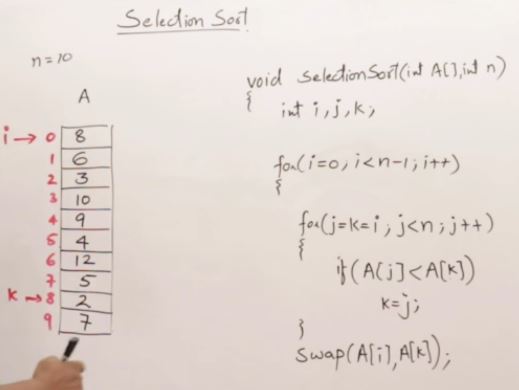 Selection Sort
n=10
A
i→ 0 8
1 6
2 3
3 10
4 9
5 4
6 12
7 5
k→ 8 2
9 7
void SelectionSort(int A[],int n)
{
int i,j,k;
for(i=0;i<n-1;i++)
{
for(j=k=i;j<n;j++)
{
if(A[j]<A[k])
k=j;
}
swap(A[i],A[k]);